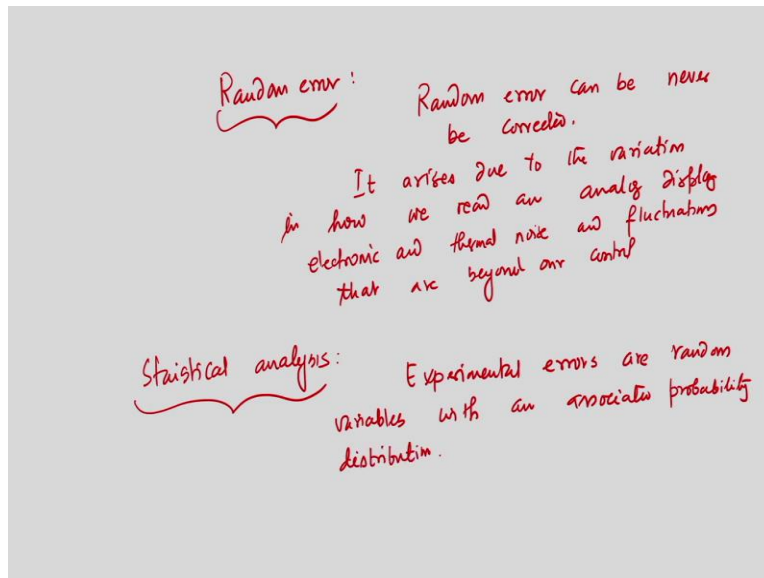 Random error: Random error can be never
be corrected.
It arises due to the variation
in how we read an analog display
electronic and thermal noise and fluctuations
that are beyond our control
Staistical analysis: Experimental errors are random
variables with an associated probability
distribution.